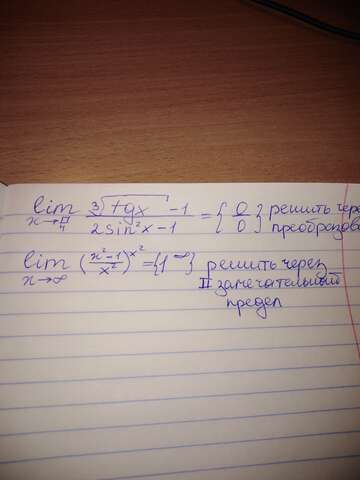 lim x→π/4 (∛(tgx) -1)/(2sin²x-1) = {0/0} решить
lim x→∞ ((x²-1)/x²)^x² = {1^∞} решить через
II замечательный
предел